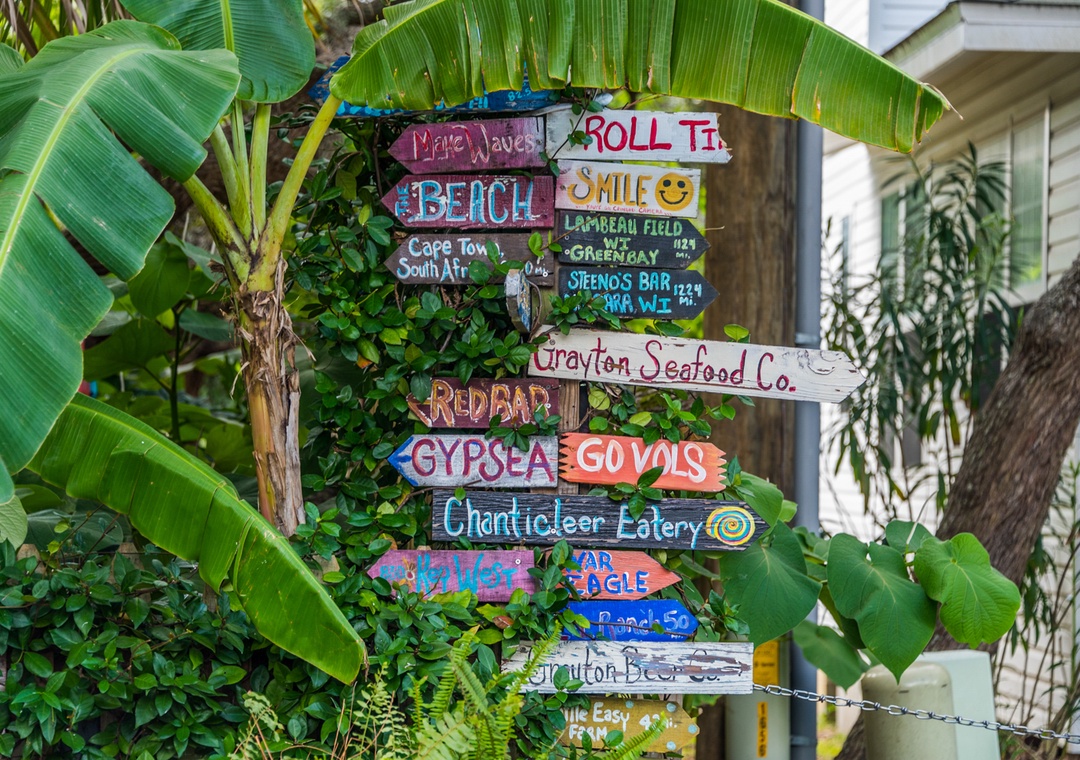 Make Waves
ROLL
THE BEACH
SMILE
Cape
South
LAMBEAU FIELD
WI
GREEN BAY
1124
Mi.
STEENO'S BAR
WI
1224
Mi.
Grayton Seafood Co.
RED BAR
GYPSEA
GO VOLS
Chanticleer Eatery
Hop West
WAR
EAGLE
Ranch 50
Grayton Beer Co.
Easy
FARM